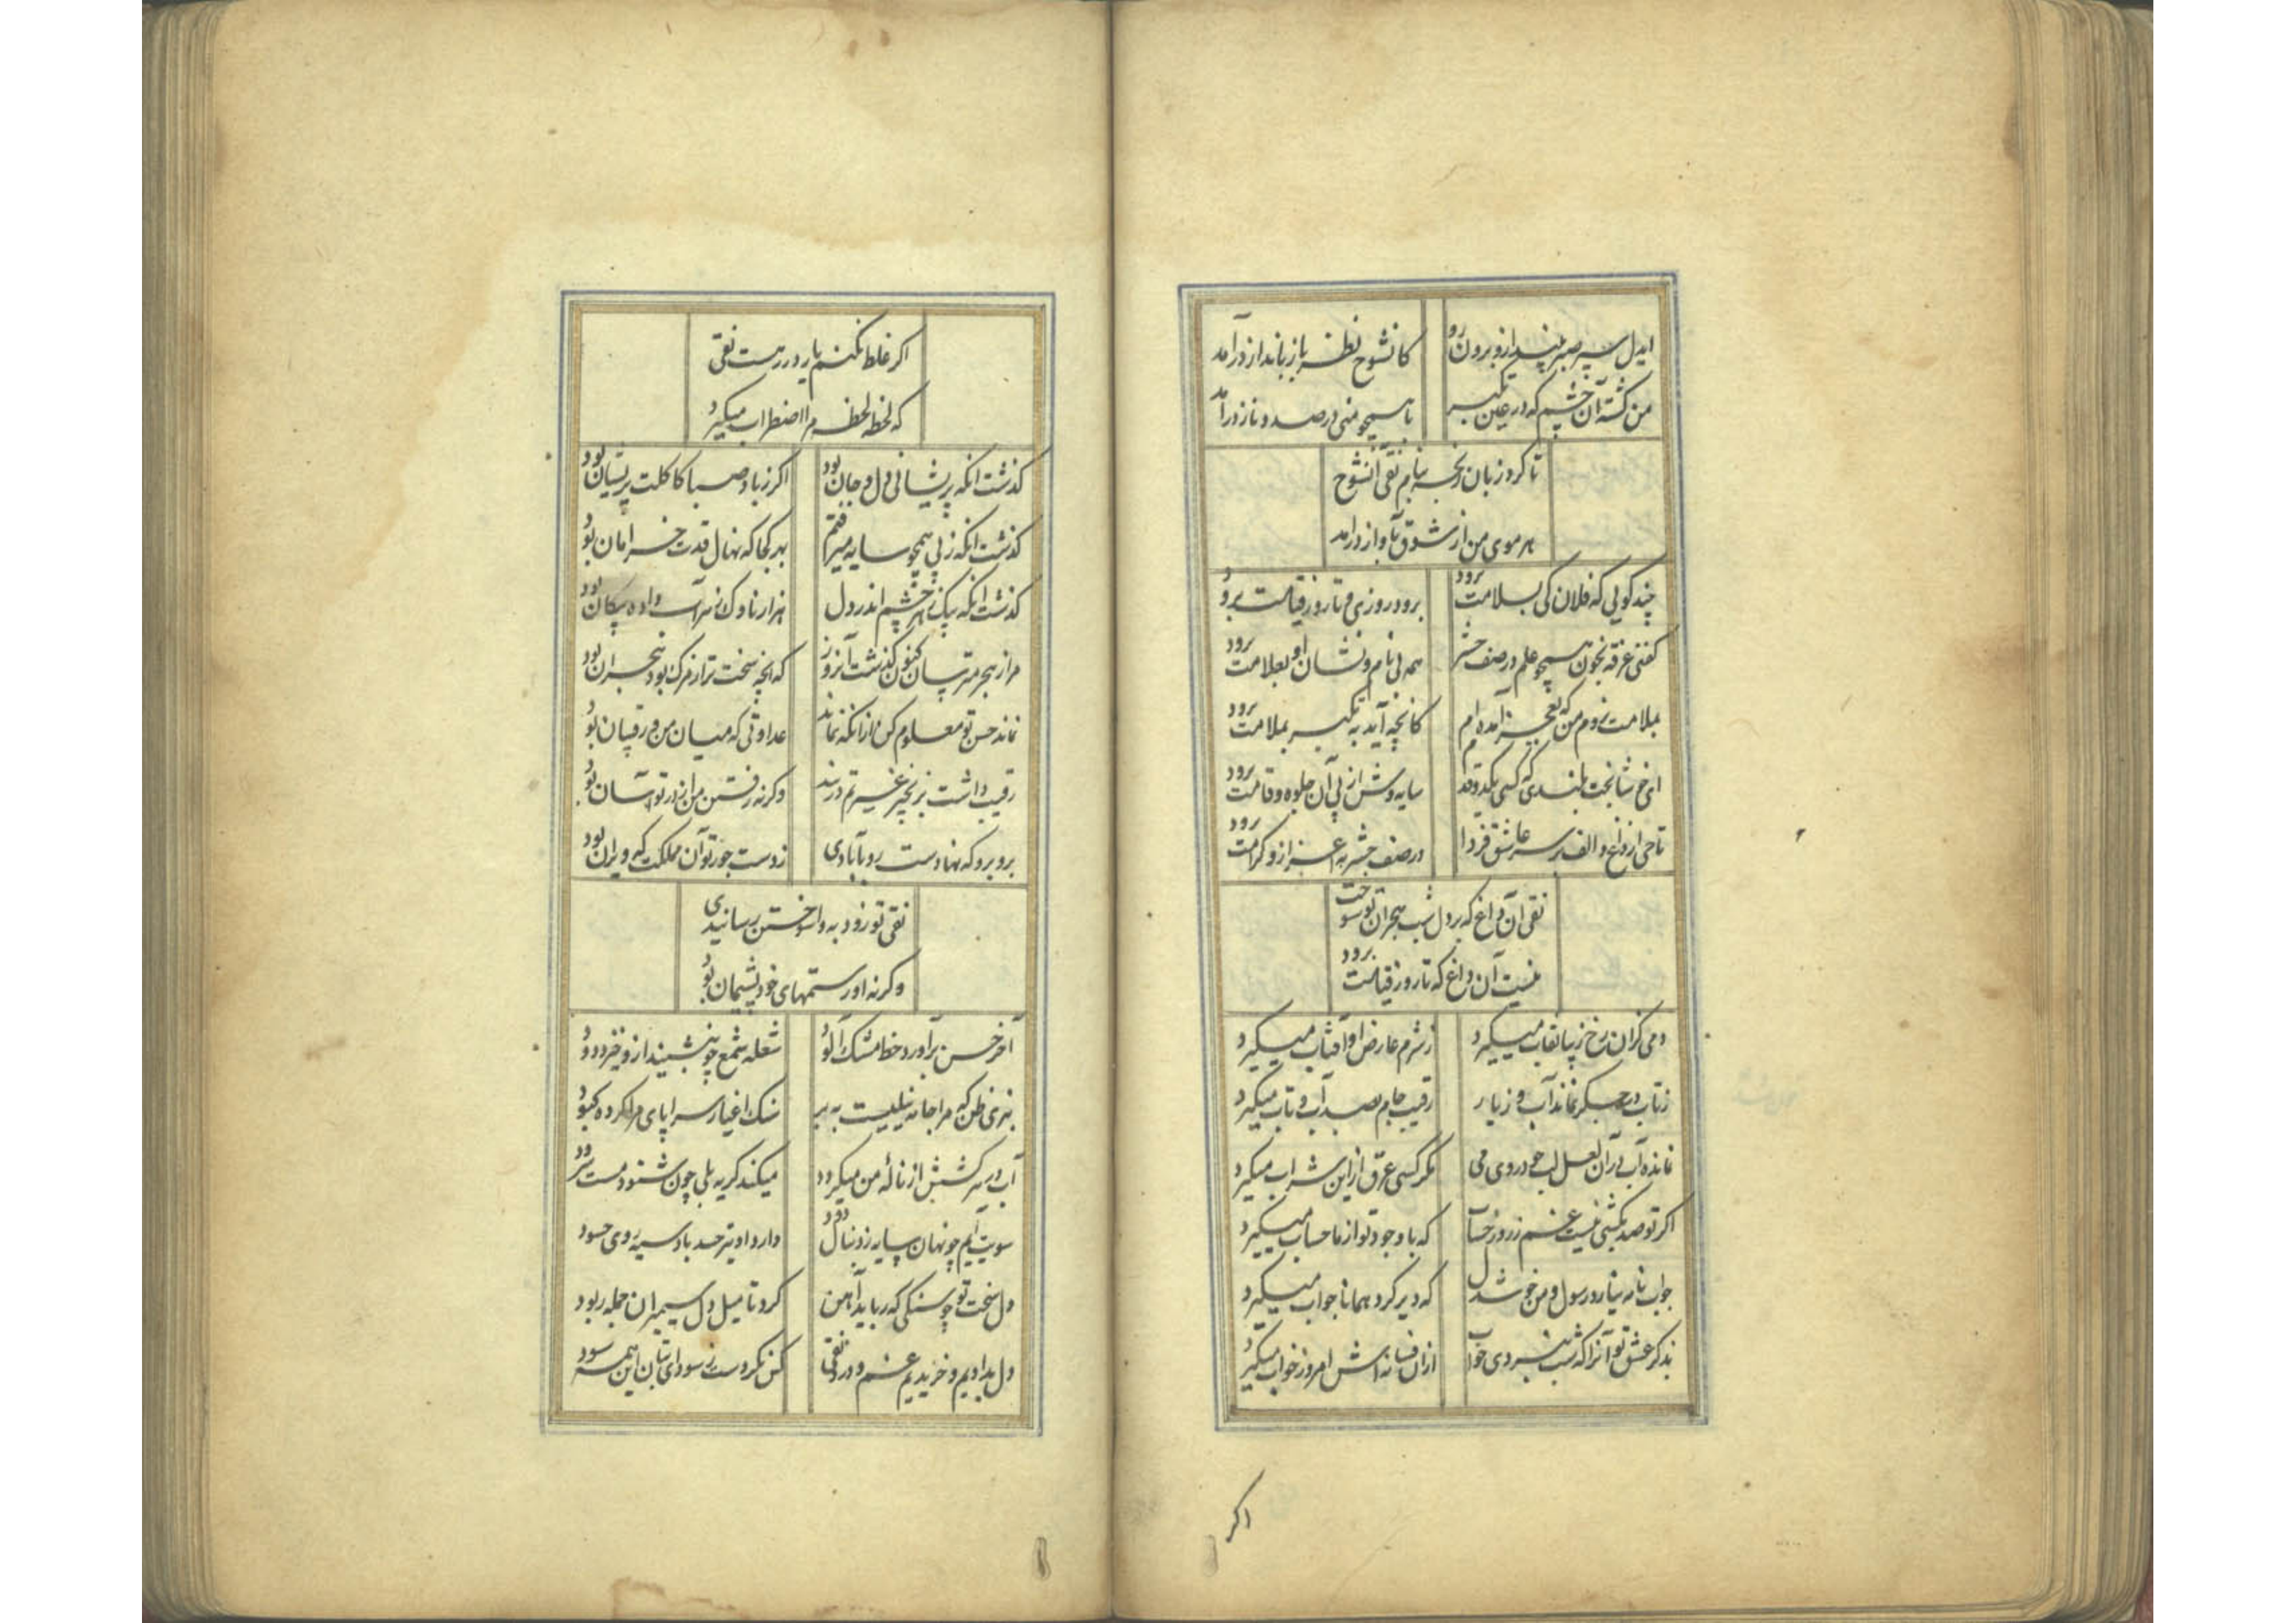 ایدل سپر صبر بیند از و برون رو کانشوخ نظر باز بانداز درآمد
من کشته آن چشم که در عین تکبر با همچو منی در صدد ناز درآمد
تا کرد زبان رنجه بنام نقی آنشوخ
هر موی من از شوق بآواز درآمد
چند کویی که فلان کی بسلامت برود برود روزی و تا روز قیامت برود
کفنی غرقه بخون همچو علم در صف حشر همه بی نام و نشان او بعلامت برود
بملامت نروم من که بعجز آمده ام کانچه آید به تکبر بملامت برود
ای خوشا بخت بلندی که کسی یکدو قدم سایه وش از پی آن جلوه و قامت برود
تاجی از داغ و الف بر سر عاشق فردا در صف حشر به اعزاز و کرامت برود
نقی آن داغ که بر دل شب هجران تو سوخت
نیست آن داغ که تا روز قیامت برود
دمی کزان رخ زیبا نقاب میکیرد ز شرم عارض او آفتاب میکیرد
ز تاب در جکر نماند آب و ز یار رقیب جام بصد آب و تاب میکیرد
نمانده آب بر آن لعل لب چو در وی می مکر کسی عرق از این شراب میکیرد
اکر تو صد بکشی نیست غم ز روز حساب که با وجود تو از ما حساب میکیرد
جواب نامه نیاورد رسول و من خوشدل که دیر کرد همانا جواب میکیرد
بذکر عشق تو آنرا که شب نبردی خواب از آن فسانه اش امروز خواب میکیرد
اکر
اکر غلط نکنم یار در رهست نقی
که لحظه لحظه مرا اضطراب میکیرد
کذشت انکه پریشانی دل و جان بود اکر ز باد صبا کاکلت پریشان بود
کذشت انکه ز پی همچو سایه میرفتم بهر کجا که نهال قدت خرامان بود
کذشت انکه بیک زخشم اندر دل هزار ناوک زهرآب داده پیکان بود
مرا ز هجر مترسان کنون کذشت آنروز که انچه سخت تر از مرک بود هجران بود
نماند حسن تو معلوم کن از انکه نماند عداوتی که میان من و رقیبان بود
رقیب داشت بزنجیر غیرتم در بند وکرنه رفتن من از در تو آسان بود
برو برو که نهادست رو بآبادی ز دست جور تو آن مملکت که ویران بود
نقی تو زود به واسوختن رسانیدی
وکرنه او ز ستمهای خود پشیمان بود
آخر حسن برآورد خط مشک آلود شعله شمع چو بنشیند ازو خیزد دود
نبری ظن که مرا جامه نیلیست به بر سنک اغیار سراپای مرا کرده کبود
آب در سرکشش از نالهٔ من میکردد میکند کریه بلی چون شنود مست سرود
سویت آیم چو نهان سایه ز دنبال دود دارد او نیز حسد باد سیه روی حسود
دل سخت تو چو سنکی که رباید آهن کرد تا میل دل سیمبران جمله ربود
دل بدادیم و خریدیم غم و درد نقی کس نکردست ز سودای بتان اینهمه سود